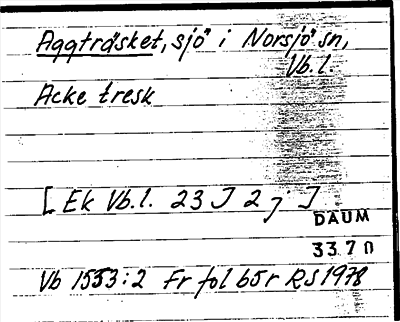 Aggträsket, sjö i Norsjö sn,
Vb.l.
Acke tresk
[Ek Vb.l. 23 J 2 j]
DAUM
33.70
Vb 1553:2 Fr fol 65r RS 1978